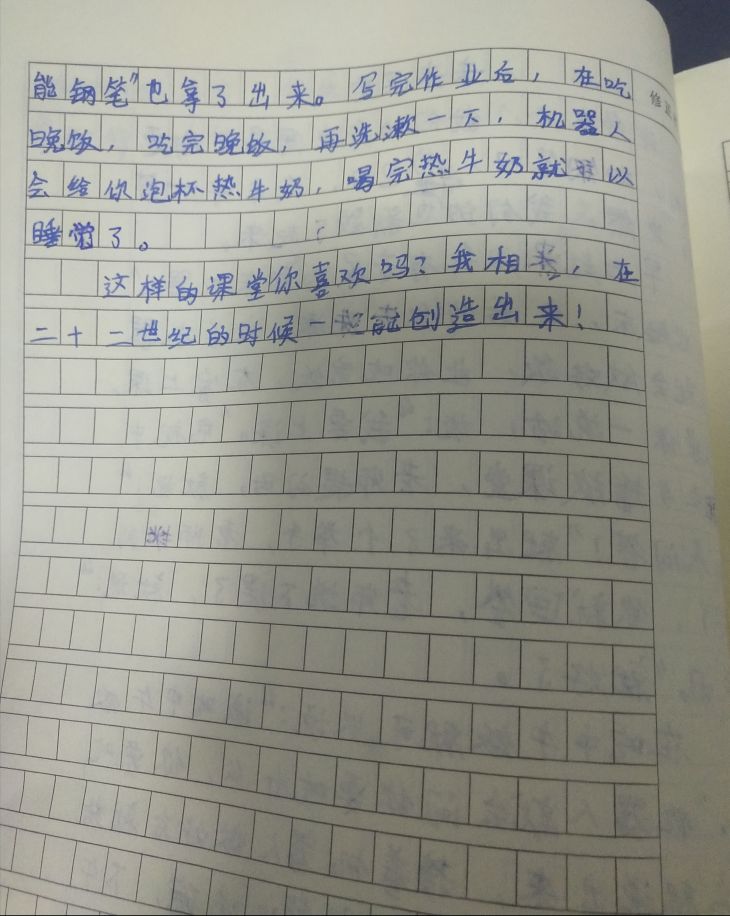 能钢笔”也拿了出来。写完作业后，在吃
晚饭，吃完晚饭，再洗漱一下，机器人
会给你泡杯热牛奶，喝完热牛奶就可以
睡觉了。
这样的课堂你喜欢吗？我相来，在
二十二世纪的时候一定能创造出来！